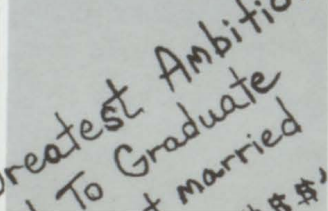 Greatest Ambitio
To Graduate
married
$$,